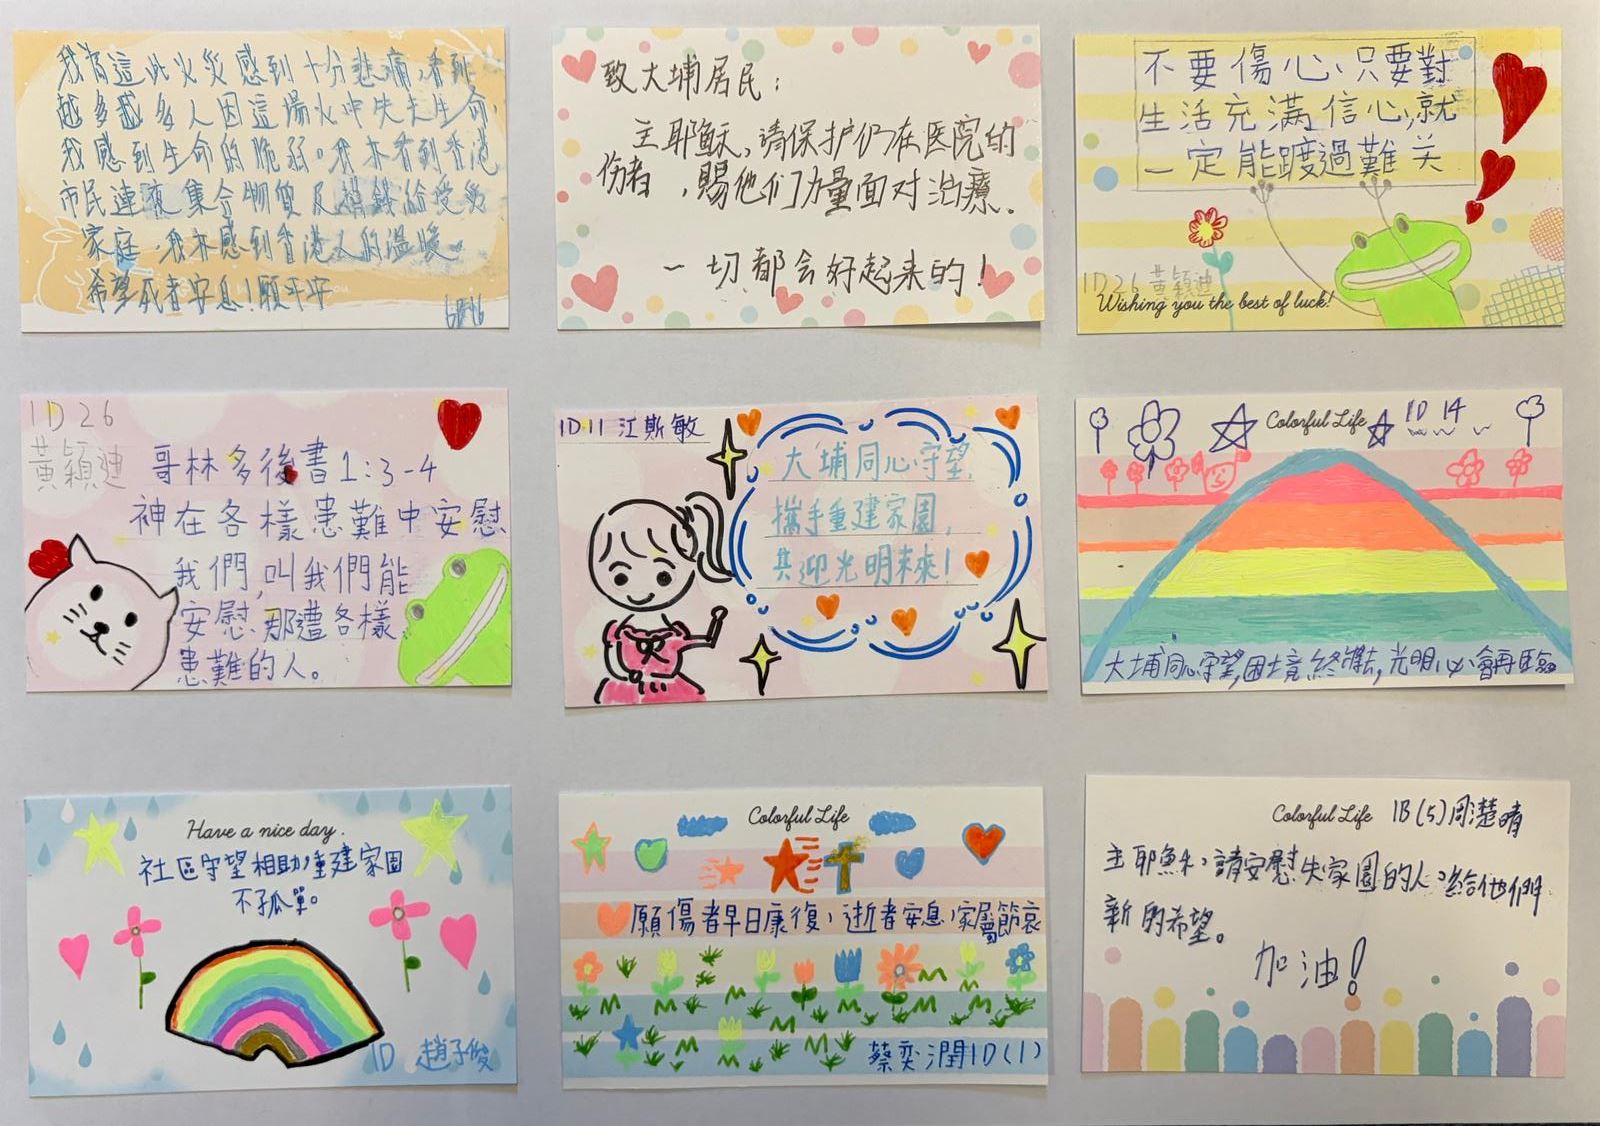 我為這此火災感到十分悲痛,看到
越多越多人因這場火中失去生命,
我感到生命的脆弱。我亦看到香港
市民連夜集合物資及捐錢給受災
家庭,我亦感到香港人的溫暖
希望死者安息!願平安
致大埔居民:
主耶穌,請保护们在医院的
伤者,賜他们力量面对治療.
一切都会好起来的!
不要傷心、只要對
生活充滿信心,就
一定能踱過難关
1D26 黃穎迪
Wishing you the best of luck!
1D 26
黃穎迪
哥林多後書1:3-4
神在各樣患難中安慰
我們,叫我們能
安慰那遭各樣
患難的人。
1D 11 江斯敏
大埔同心守望,
攜手重建家園,
共迎光明未來!
Colorful Life
1D 14
大埔同心守望,困境終離去,光明必會再臨
Have a nice day.
社區守望相助,重建家園
不孤單。
1D 趙子俊
Colorful Life
願傷者早日康復,逝者安息,家屬節哀
蔡奕潤1D(1)
Colorful Life
1B(5)周濋晴
主耶穌,請安慰失家園的人,給他們
新的希望。
加油!